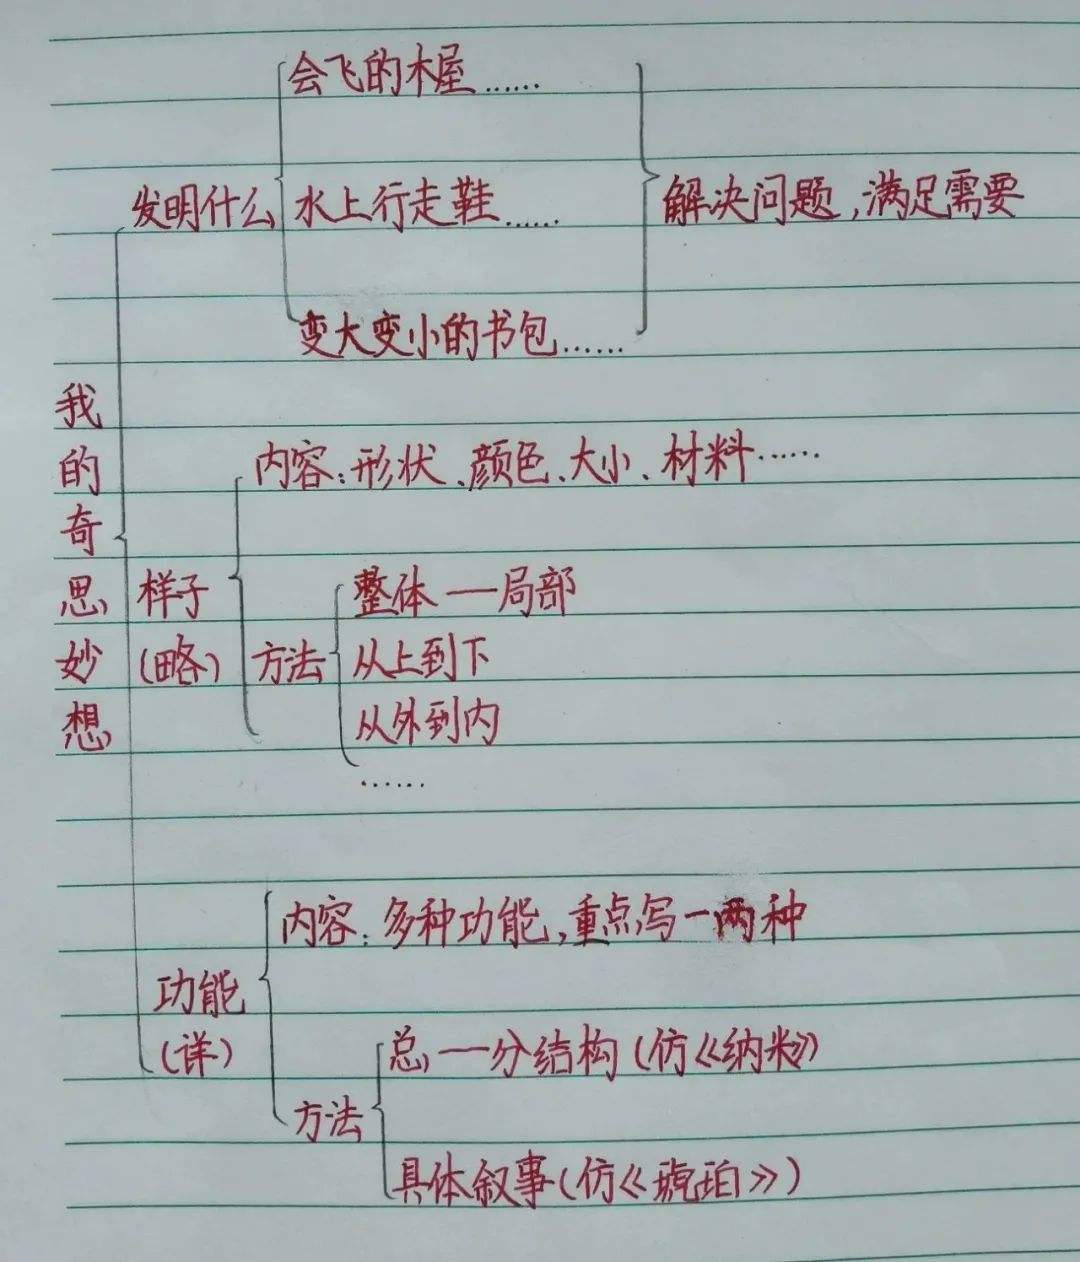 我的奇思妙想
发明什么
会飞的木屋……
水上行走鞋……
变大变小的书包……
解决问题,满足需要
样子
(略)
内容:形状、颜色、大小、材料……
方法
整体一局部
从上到下
从外到内
……
功能
(详)
内容:多种功能,重点写一两种
方法
总一分结构(仿《纳米》)
具体叙事(仿《琥珀》)